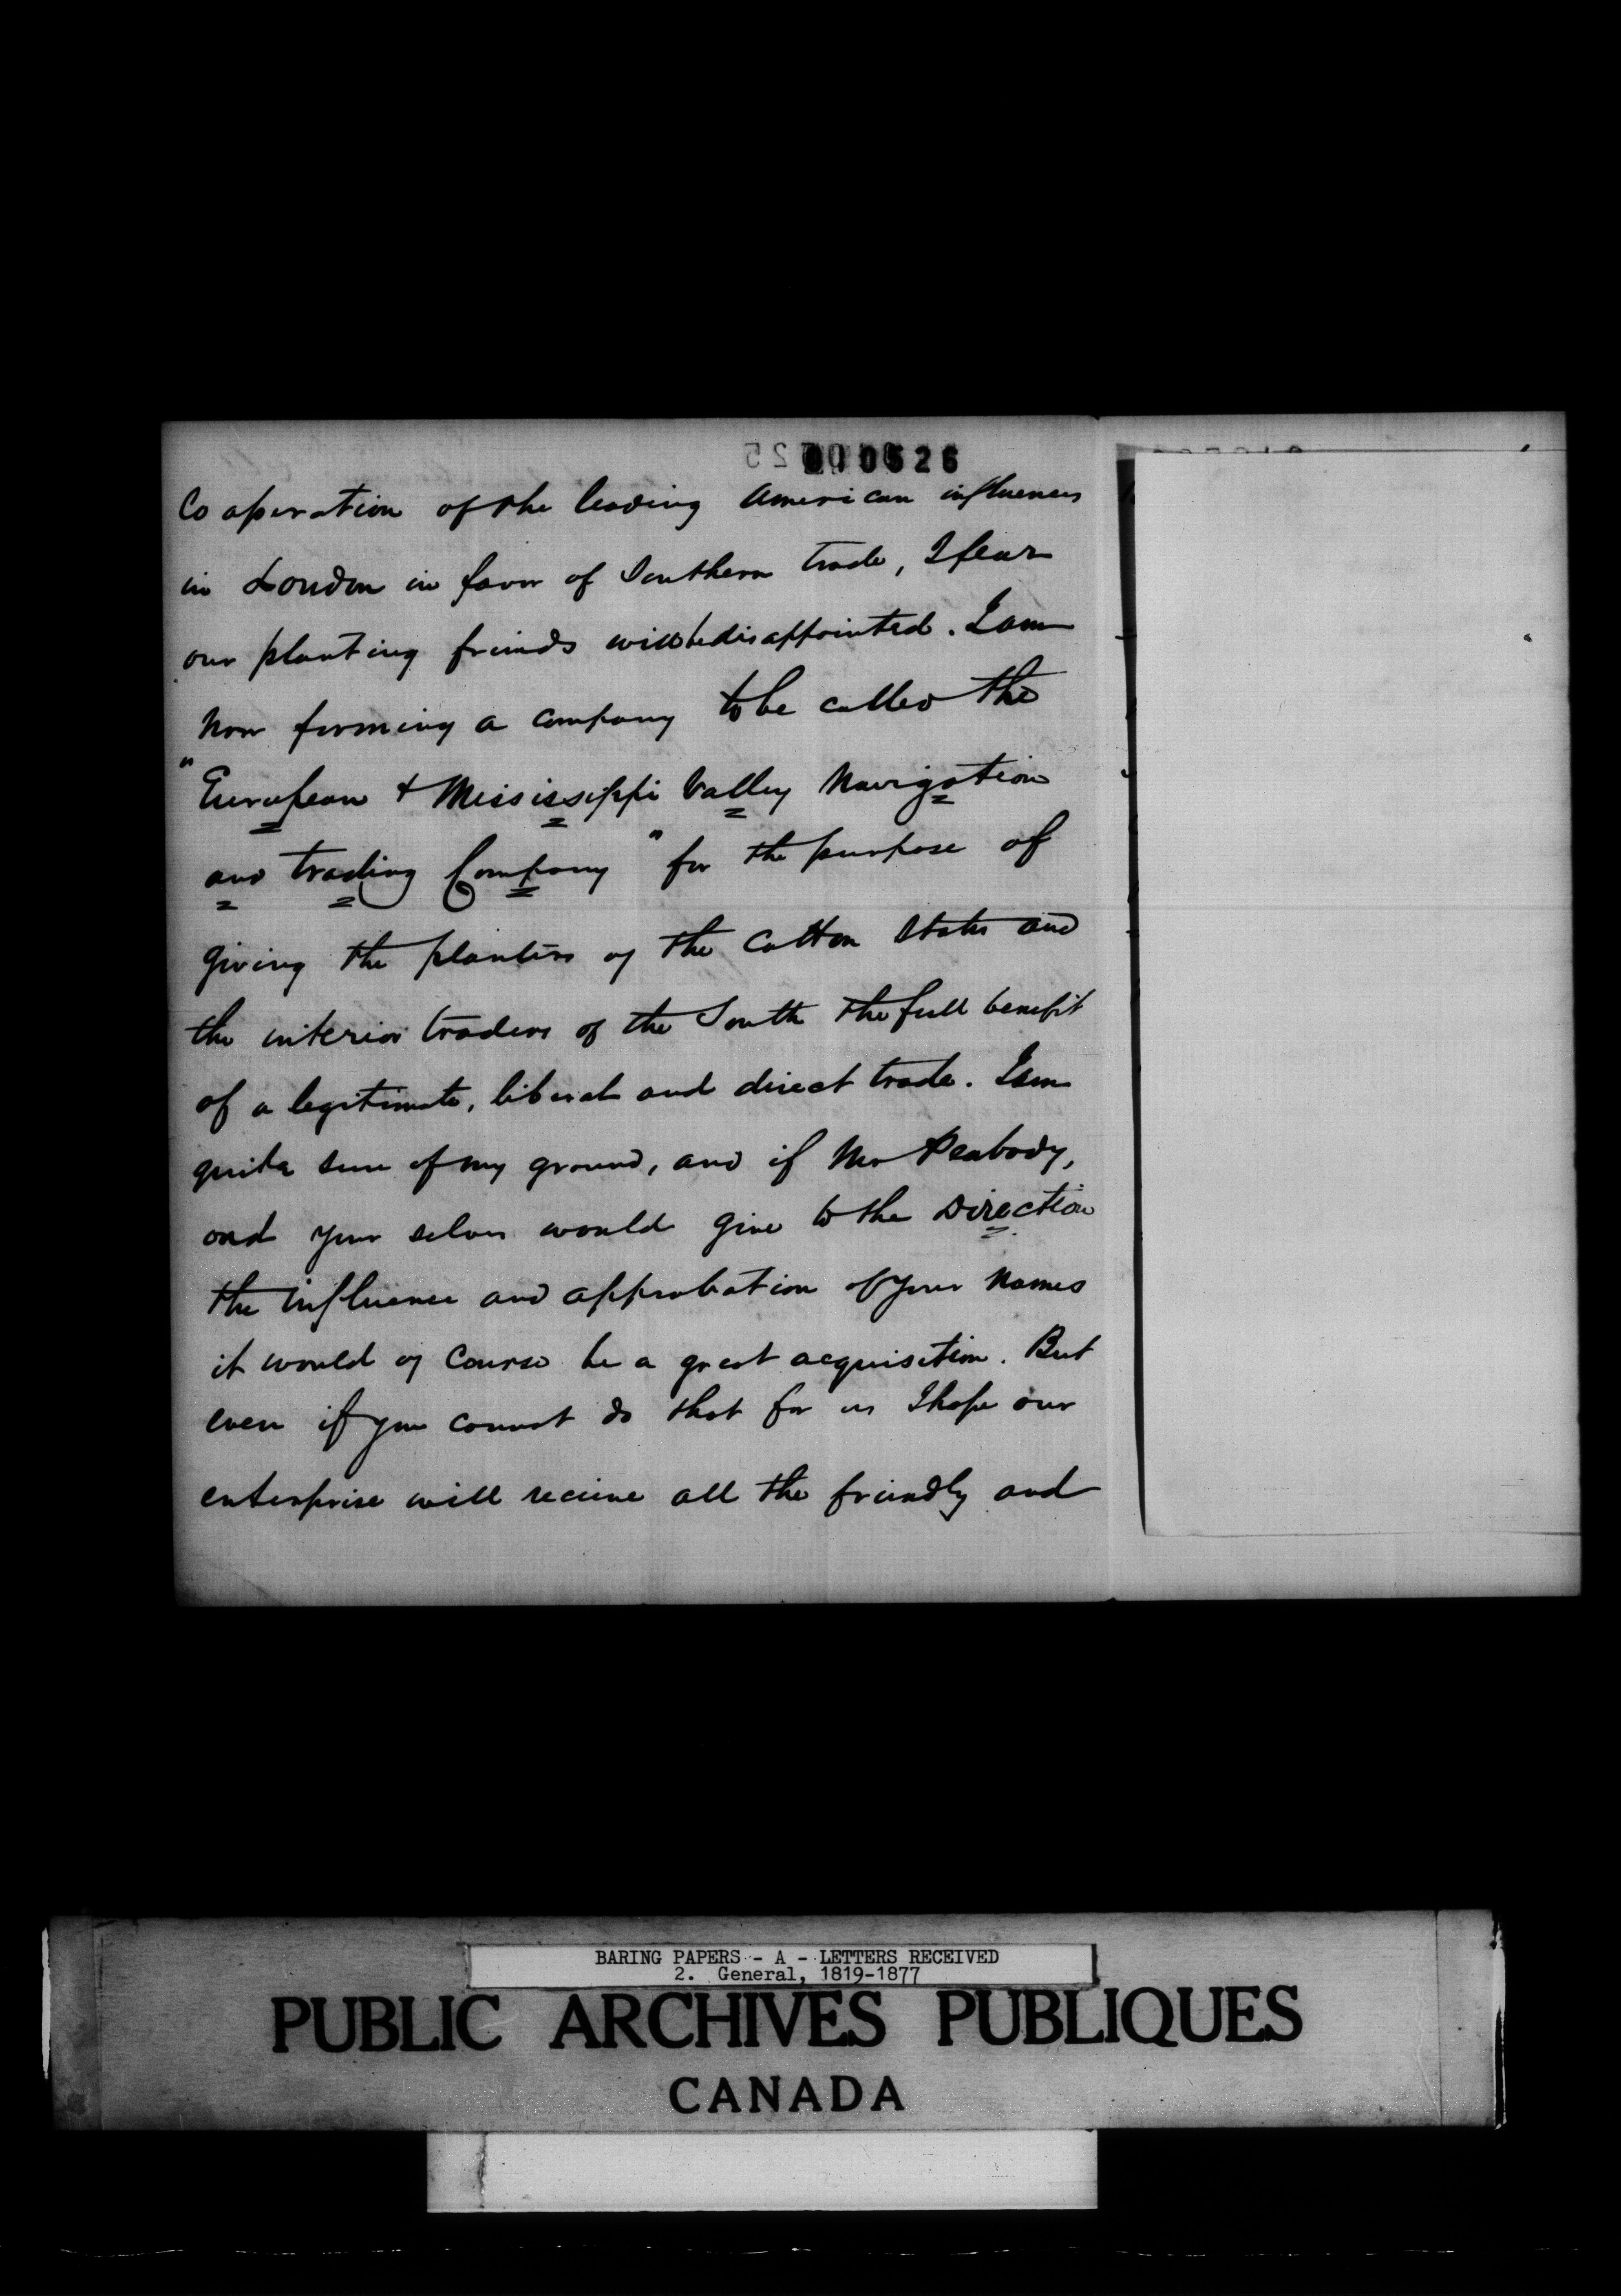 010526
Cooperation of the leading American influences
in London in favor of Southern trade, I fear
our planting friends will be disappointed. I am
now forming a company to be called the
"European & Mississippi Valley Navigation
and trading Company" for the purpose of
giving the planters of the Cotton States and
the interior traders of the South the full benefit
of a legitimate, liberal and direct trade. I am
quite sure of my ground, and if Mr Peabody,
and your selves would give to the Direction
the influence and approbation of your names
it would of course be a great acquisition. But
even if you cannot do that for us I hope our
enterprise will receive all the friendly and
BARING PAPERS - A - LETTERS RECEIVED
2. General, 1819-1877
PUBLIC ARCHIVES PUBLIQUES
CANADA